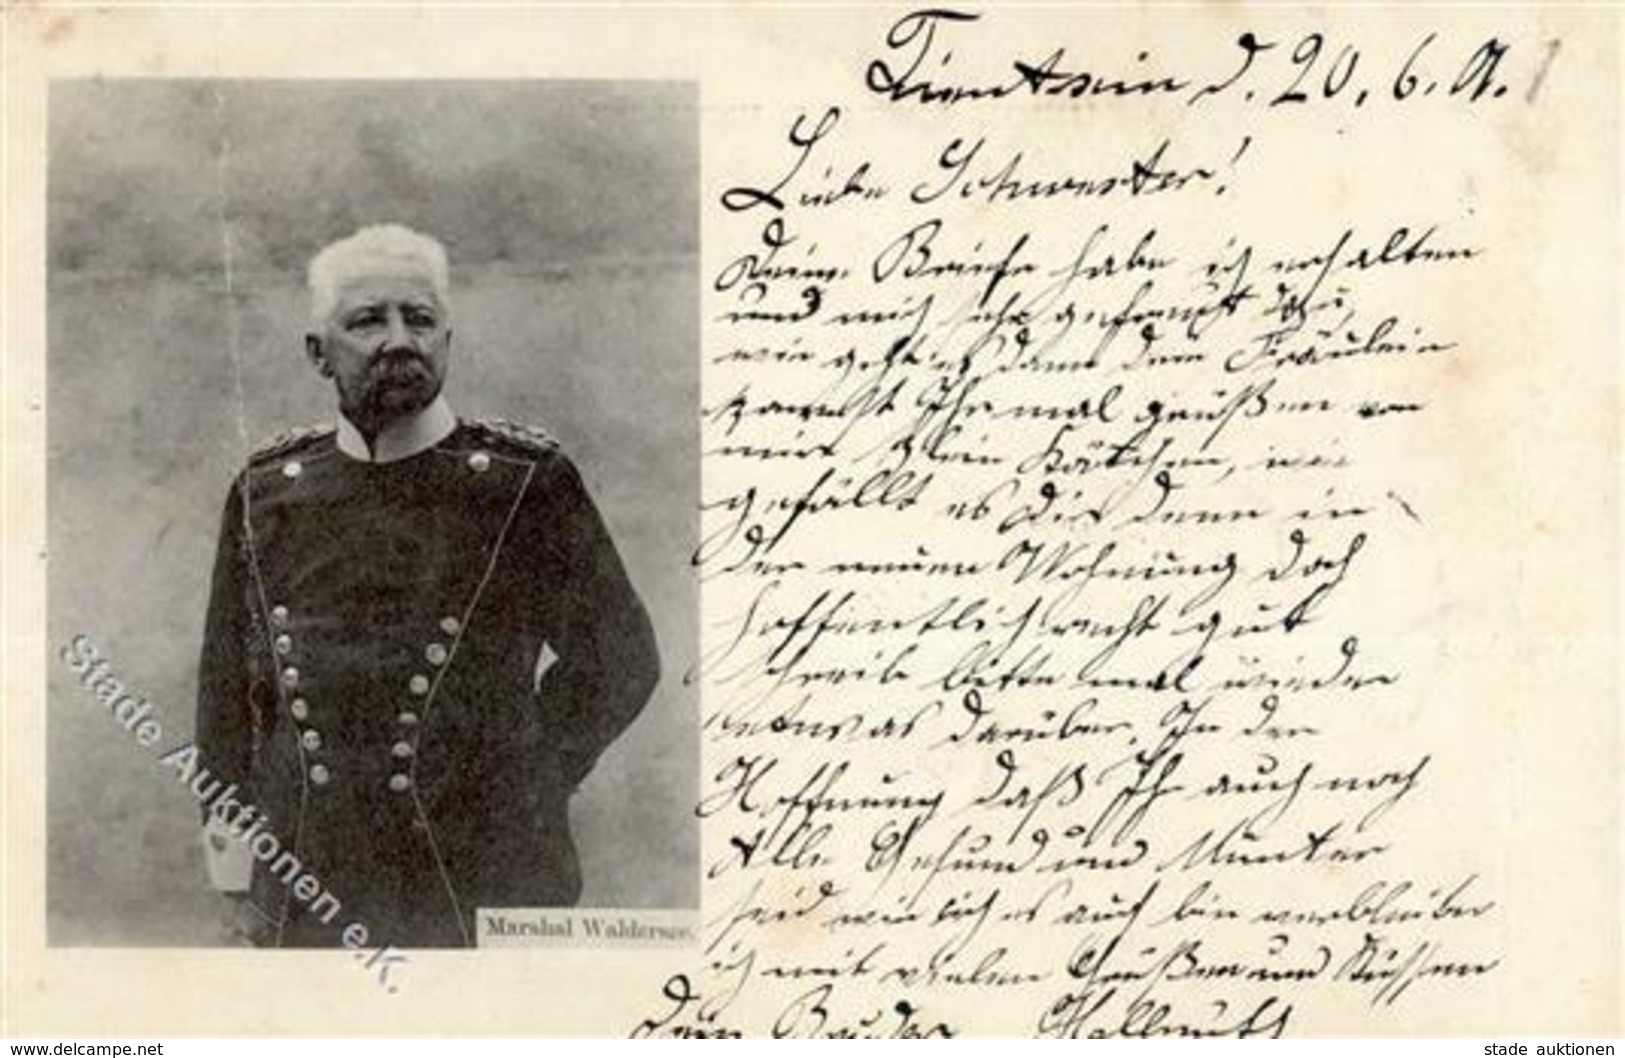 Tientsin d. 20. 6. 01.
Liebe Schwester!
Deine Briefe habe ich erhalten
und mich sehr gefreut dazu,
wie geht es dann dem Fräulein
kannst Ihr mal grüßen von
mir Klein Kätchen, wie
gefällt es Dir denn in
der neuen Wohnung doch
hoffentlich recht gut
schreib bitte mal wieder
etwas darüber. In der
Hoffnung daß Ihr auch noch
Alle Gesund und Munter
seid wie ich es auch bin verbleibe
ich mit vielen Grüßen und Küssen
Dein Bruder Hellmuth
Marshal Waldersee.
Stade Auktionen e.K.
www.delcampe.net
stade auktionen